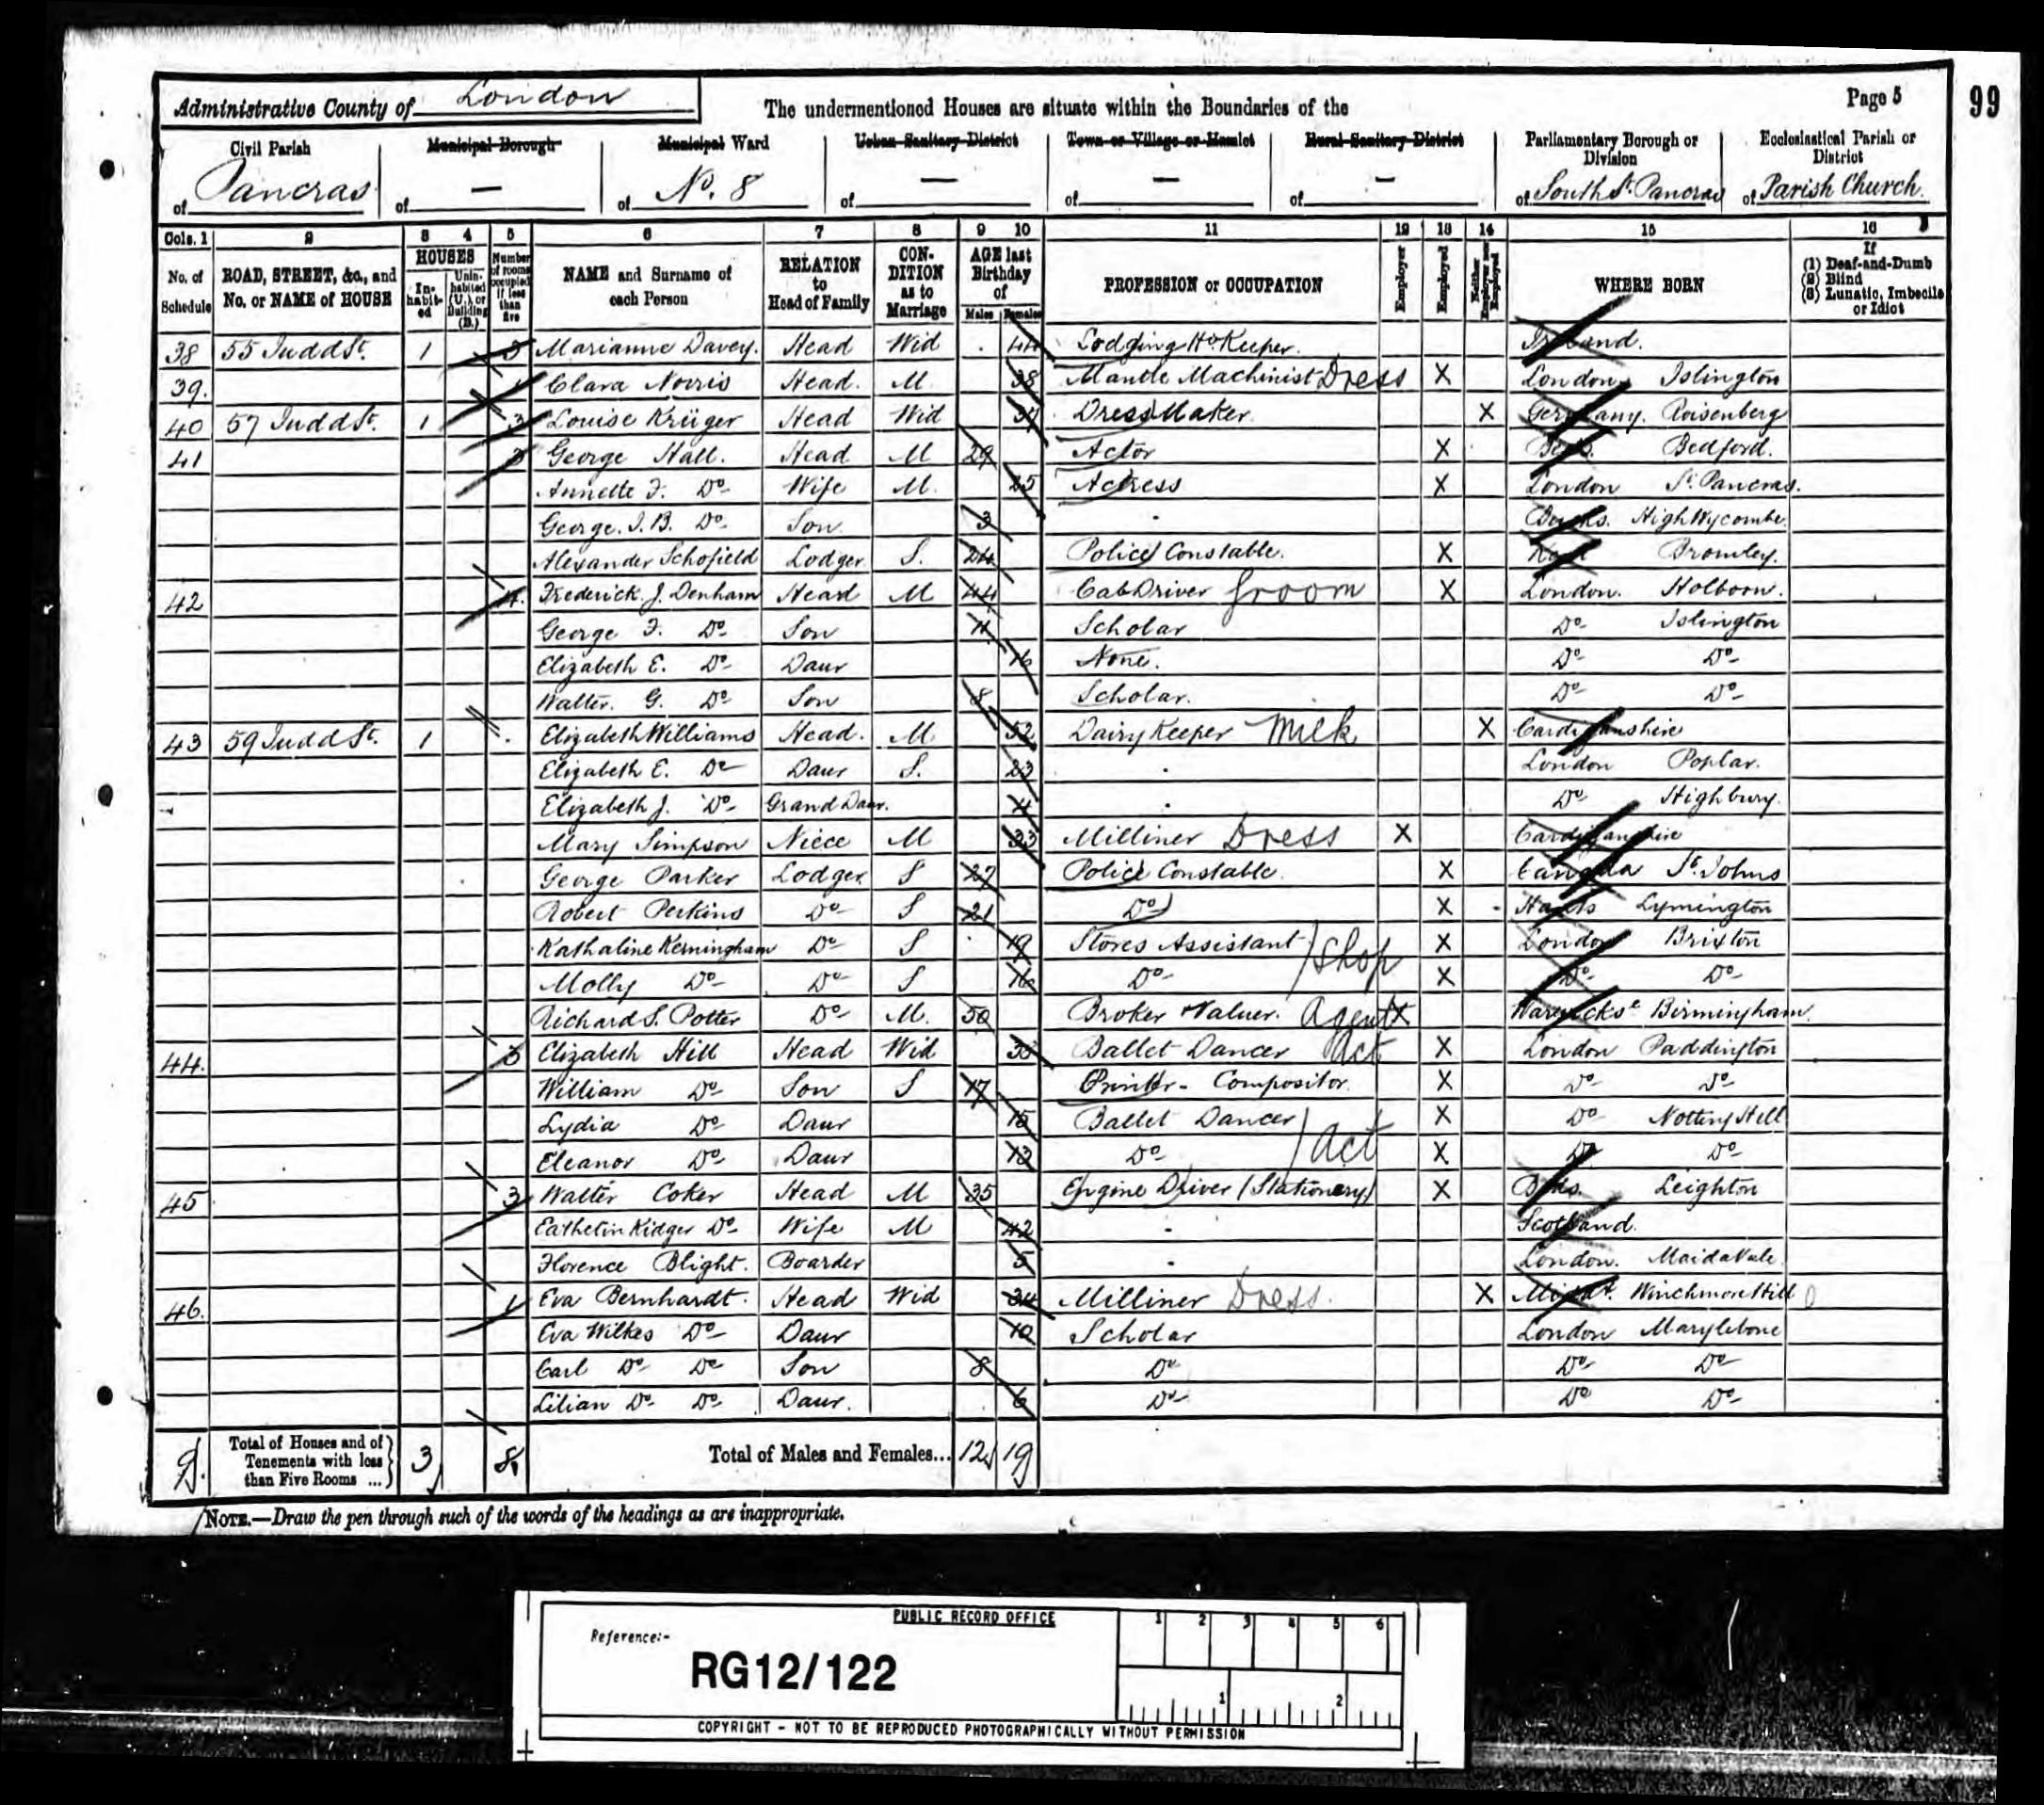 Administrative County of London
The undermentioned Houses are situate within the Boundaries of the
Page 5
99
Civil Parish of Pancras
Municipal Borough of —
Municipal Ward of No. 8
Urban Sanitary District of —
Town or Village or Hamlet of —
Rural Sanitary District of —
Parliamentary Borough or Division of South St. Pancras
Ecclesiastical Parish or District of Parish Church.
Cols. 1 2 3 4 5 6 7 8 9 10 11 12 13 14 15 16
No. of Schedule
ROAD, STREET, &c., and No. or NAME of HOUSE
HOUSES
In-habit-ed
Unin-habited (U.), or Building (B.)
Number of rooms occupied if less than five
NAME and Surname of each Person
RELATION to Head of Family
CON-DITION as to Marriage
AGE last Birthday of
Males Females
PROFESSION or OCCUPATION
Employer
Employed
Neither Employer nor Employed
WHERE BORN
If
(1) Deaf-and-Dumb
(2) Blind
(3) Lunatic, Imbecile or Idiot
38 55 Judd St. 1 3 Marianne Davey. Head Wid 44 Lodging Ho. Keeper. Ireland.
39. 1 Clara Norris Head. M 38 Mantle Machinist Dress X London Islington
40 57 Judd St. 1 3 Louise Krüger Head Wid Dress Maker. X Germany.
41 George Hall. Head M 29 Actor X Beds. Bedford.
Annette F. Do Wife M. 25 Actress X London St. Pancras.
George. Do Son 3 Bucks. High Wycombe.
Alexander Schofield Lodger S. 24 Police Constable. X Kent Bromley.
42 4. Frederick. J. Denham Head M 44 Cab Driver Groom X London. Holborn.
George F. Do Son 11 Scholar Do Islington
Elizabeth E. Do Daur 16 None. Do Do
Walter. G. Do Son 8 Scholar. Do Do
43 59 Judd St. 1 Elizabeth Williams Head. M 52 Dairy Keeper Milk X Cardiganshire
Elizabeth E. Do Daur S. 23 London Poplar.
Elizabeth J. Do Grand Daur. Do Highbury.
Mary Simpson Niece M 33 Milliner Dress X Cardiganshire
George Parker Lodger S 27 Police Constable. X Canada St. Johns
Robert Perkins Do S 21 Do X Hants Lymington
Kathaline Kerningham Do S 19 Stores Assistant Shop X London Brixton
Molly Do Do S 16 Do X Do Do
Richard S. Potter Do M. 50 Broker & Valuer. Agent X Warwicks. Birmingham.
44. 3 Elizabeth Hill Head Wid Ballet Dancer Act X London Paddington
William Do Son S 17 Printer - Compositor. X Do Do
Lydia Do Daur 15 Ballet Dancer Act X Do Notting Hill
Eleanor Do Daur 13 Do X Do Do
45 3 Walter Coker Head M 35 Engine Driver (Stationery) X Leighton
Kidger Do Wife M 42 Scotland.
Florence Blight. Boarder 5 London. Maida Vale.
46. 1 Eva Bernhardt. Head Wid 34 Milliner Dress. X Middx. Winchmore Hill
Eva Wilkes Do Daur 10 Scholar London Marylebone
Carl Do Do Son 8 Do Do Do
Lilian Do Do Daur. 6 Do Do Do
Total of Houses and of Tenements with less than Five Rooms ... 3 8
Total of Males and Females... 12 19
NOTE.—Draw the pen through such of the words of the headings as are inappropriate.
PUBLIC RECORD OFFICE
1 2 3 4 5 6
Reference:-
RG12/122
1 2
COPYRIGHT - NOT TO BE REPRODUCED PHOTOGRAPHICALLY WITHOUT PERMISSION